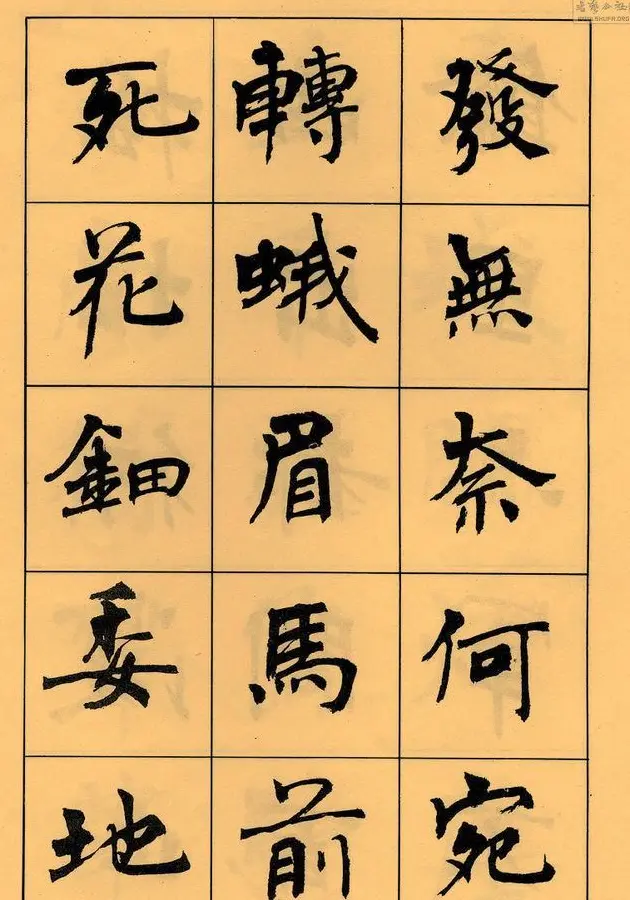 發無奈何宛
轉蛾眉馬前
死花鈿委地
WWW.SHUFA.ORG